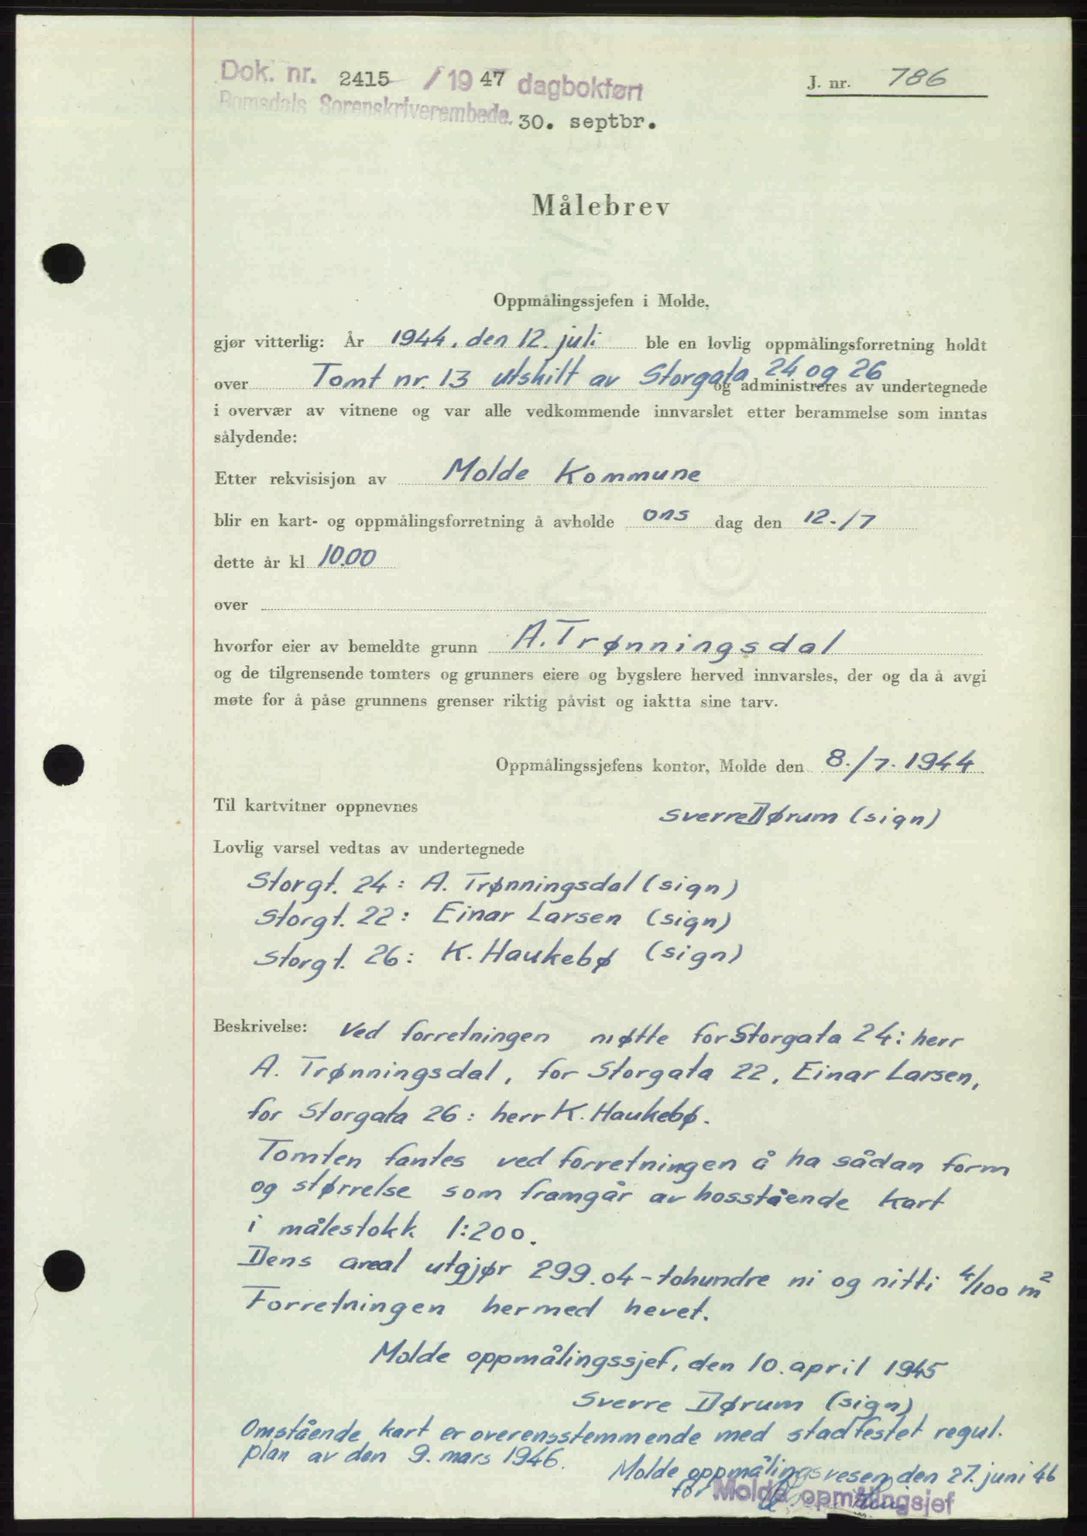 Dok. nr. 2415 /1947 dagbokført
Romsdals Sorenskriverembede. 30. septbr.
J. nr. 786
Målebrev
Oppmålingssjefen i Molde,
gjør vitterlig: År 1944, den 12. juli ble en lovlig oppmålingsforretning holdt
over Tomt nr. 13 utskilt av Storgata 24 og 26 og administreres av undertegnede
i overvær av vitnene og var alle vedkommende innvarslet etter berammelse som inntas
sålydende:
Etter rekvisisjon av Molde Kommune
blir en kart- og oppmålingsforretning å avholde ons dag den 12./7
dette år kl 10.00
over
hvorfor eier av bemeldte grunn A. Trønningsdal
og de tilgrensende tomters og grunners eiere og bygslere herved innvarsles, der og da å avgi
møte for å påse grunnens grenser riktig påvist og iaktta sine tarv.
Oppmålingssjefens kontor, Molde den 8./7. 1944
Til kartvitner oppnevnes
Sverre Dørum (sign)
Lovlig varsel vedtas av undertegnede
Storgt. 24: A. Trønningsdal (sign)
Storgt. 22: Einar Larsen (sign)
Storgt. 26: K. Haukebø (sign)
Beskrivelse: Ved forretningen møtte for Storgata 24: herr
A. Trønningsdal, for Storgata 22, Einar Larsen,
for Storgata 26: herr K. Haukebø.
Tomten fantes ved forretningen å ha sådan form
og størrelse som framgår av hosstående kart
i målestokk 1:200.
Dens areal utgjør 299.04 - tohundre ni og nitti 4/100 m²
Forretningen hermed hevet.
Molde oppmålingssjef, den 10. april 1945
Sverre Dørum (sign)
Omstående kart er overensstemmende med stadfestet regul.
plan av den 9. mars 1946.
Molde oppmålingsvesen, den 27. juni 46
for Molde oppmålingsjef